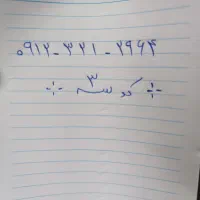 ۰۹۱۲-۳۲۱-۲۹۶۴
÷ کد سه ۳ ÷